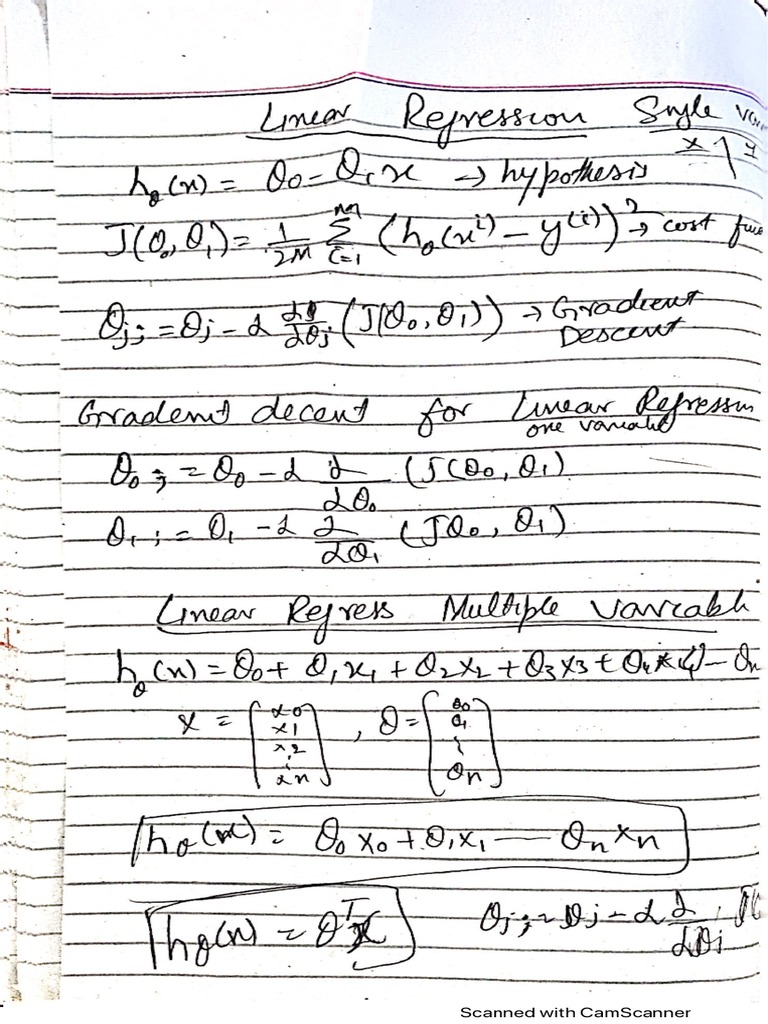 Linear Regression Single
x | y
hθ(x) = θ0 - θ1x → hypothesis
J(θ0, θ1) = 1/2M Σ i=1 m (hθ(x^i) - y^(i))^2 → cost
θj := θj - α ∂/∂θj (J(θ0, θ1)) → Gradient
Descent
Gradient decent for Linear Regression
one variable
θ0 := θ0 - α ∂/∂θ0 (J(θ0, θ1)
θ1 := θ1 - α ∂/∂θ1 (Jθ0, θ1)
Linear Regress Multiple Variable
hθ(x) = θ0 + θ1x1 + θ2x2 + θ3x3 + θ4x4 - θn
x = [x0 x1 x2 ⋮ xn] , θ = [θ0 θ1 ⋮ θn]
hθ(x) = θ0x0 + θ1x1 — θnxn
hθ(x) = θ^T x θj := θj - α ∂/∂θj
Scanned with CamScanner